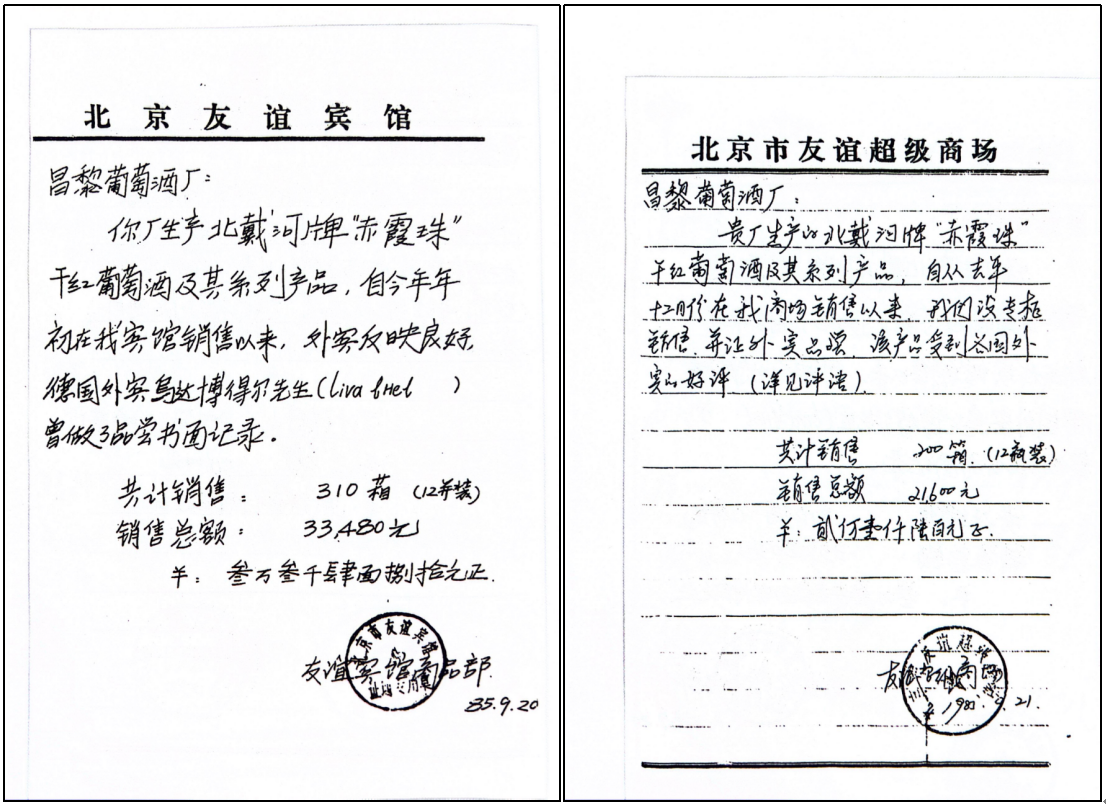 北京友谊宾馆
昌黎葡萄酒厂：
你厂生产北戴河牌“赤霞珠”
干红葡萄酒及其系列产品，自今年年
初在我宾馆销售以来，外宾反映良好，
德国外宾乌达博得尔先生（
）
曾做了品尝书面记录。
共计销售： 310箱 （12瓶装）
销售总额： 33,480元
羊： 叁万叁千肆百捌拾元正.
友谊宾馆商品部
85.9.20
北京市友谊宾馆
北京市友谊超级商场
昌黎葡萄酒厂：
贵厂生产的北戴河牌“赤霞珠”
干红葡萄酒及其系列产品，自从去年
十二月份在我商场销售以来，我们设专柜
销售，并让外宾品尝，该产品受到各国外
宾的好评（详见评语）.
共计销售 200箱.（12瓶装）
销售总额 21,600元
羊：贰万壹仟陆百元正.
21.